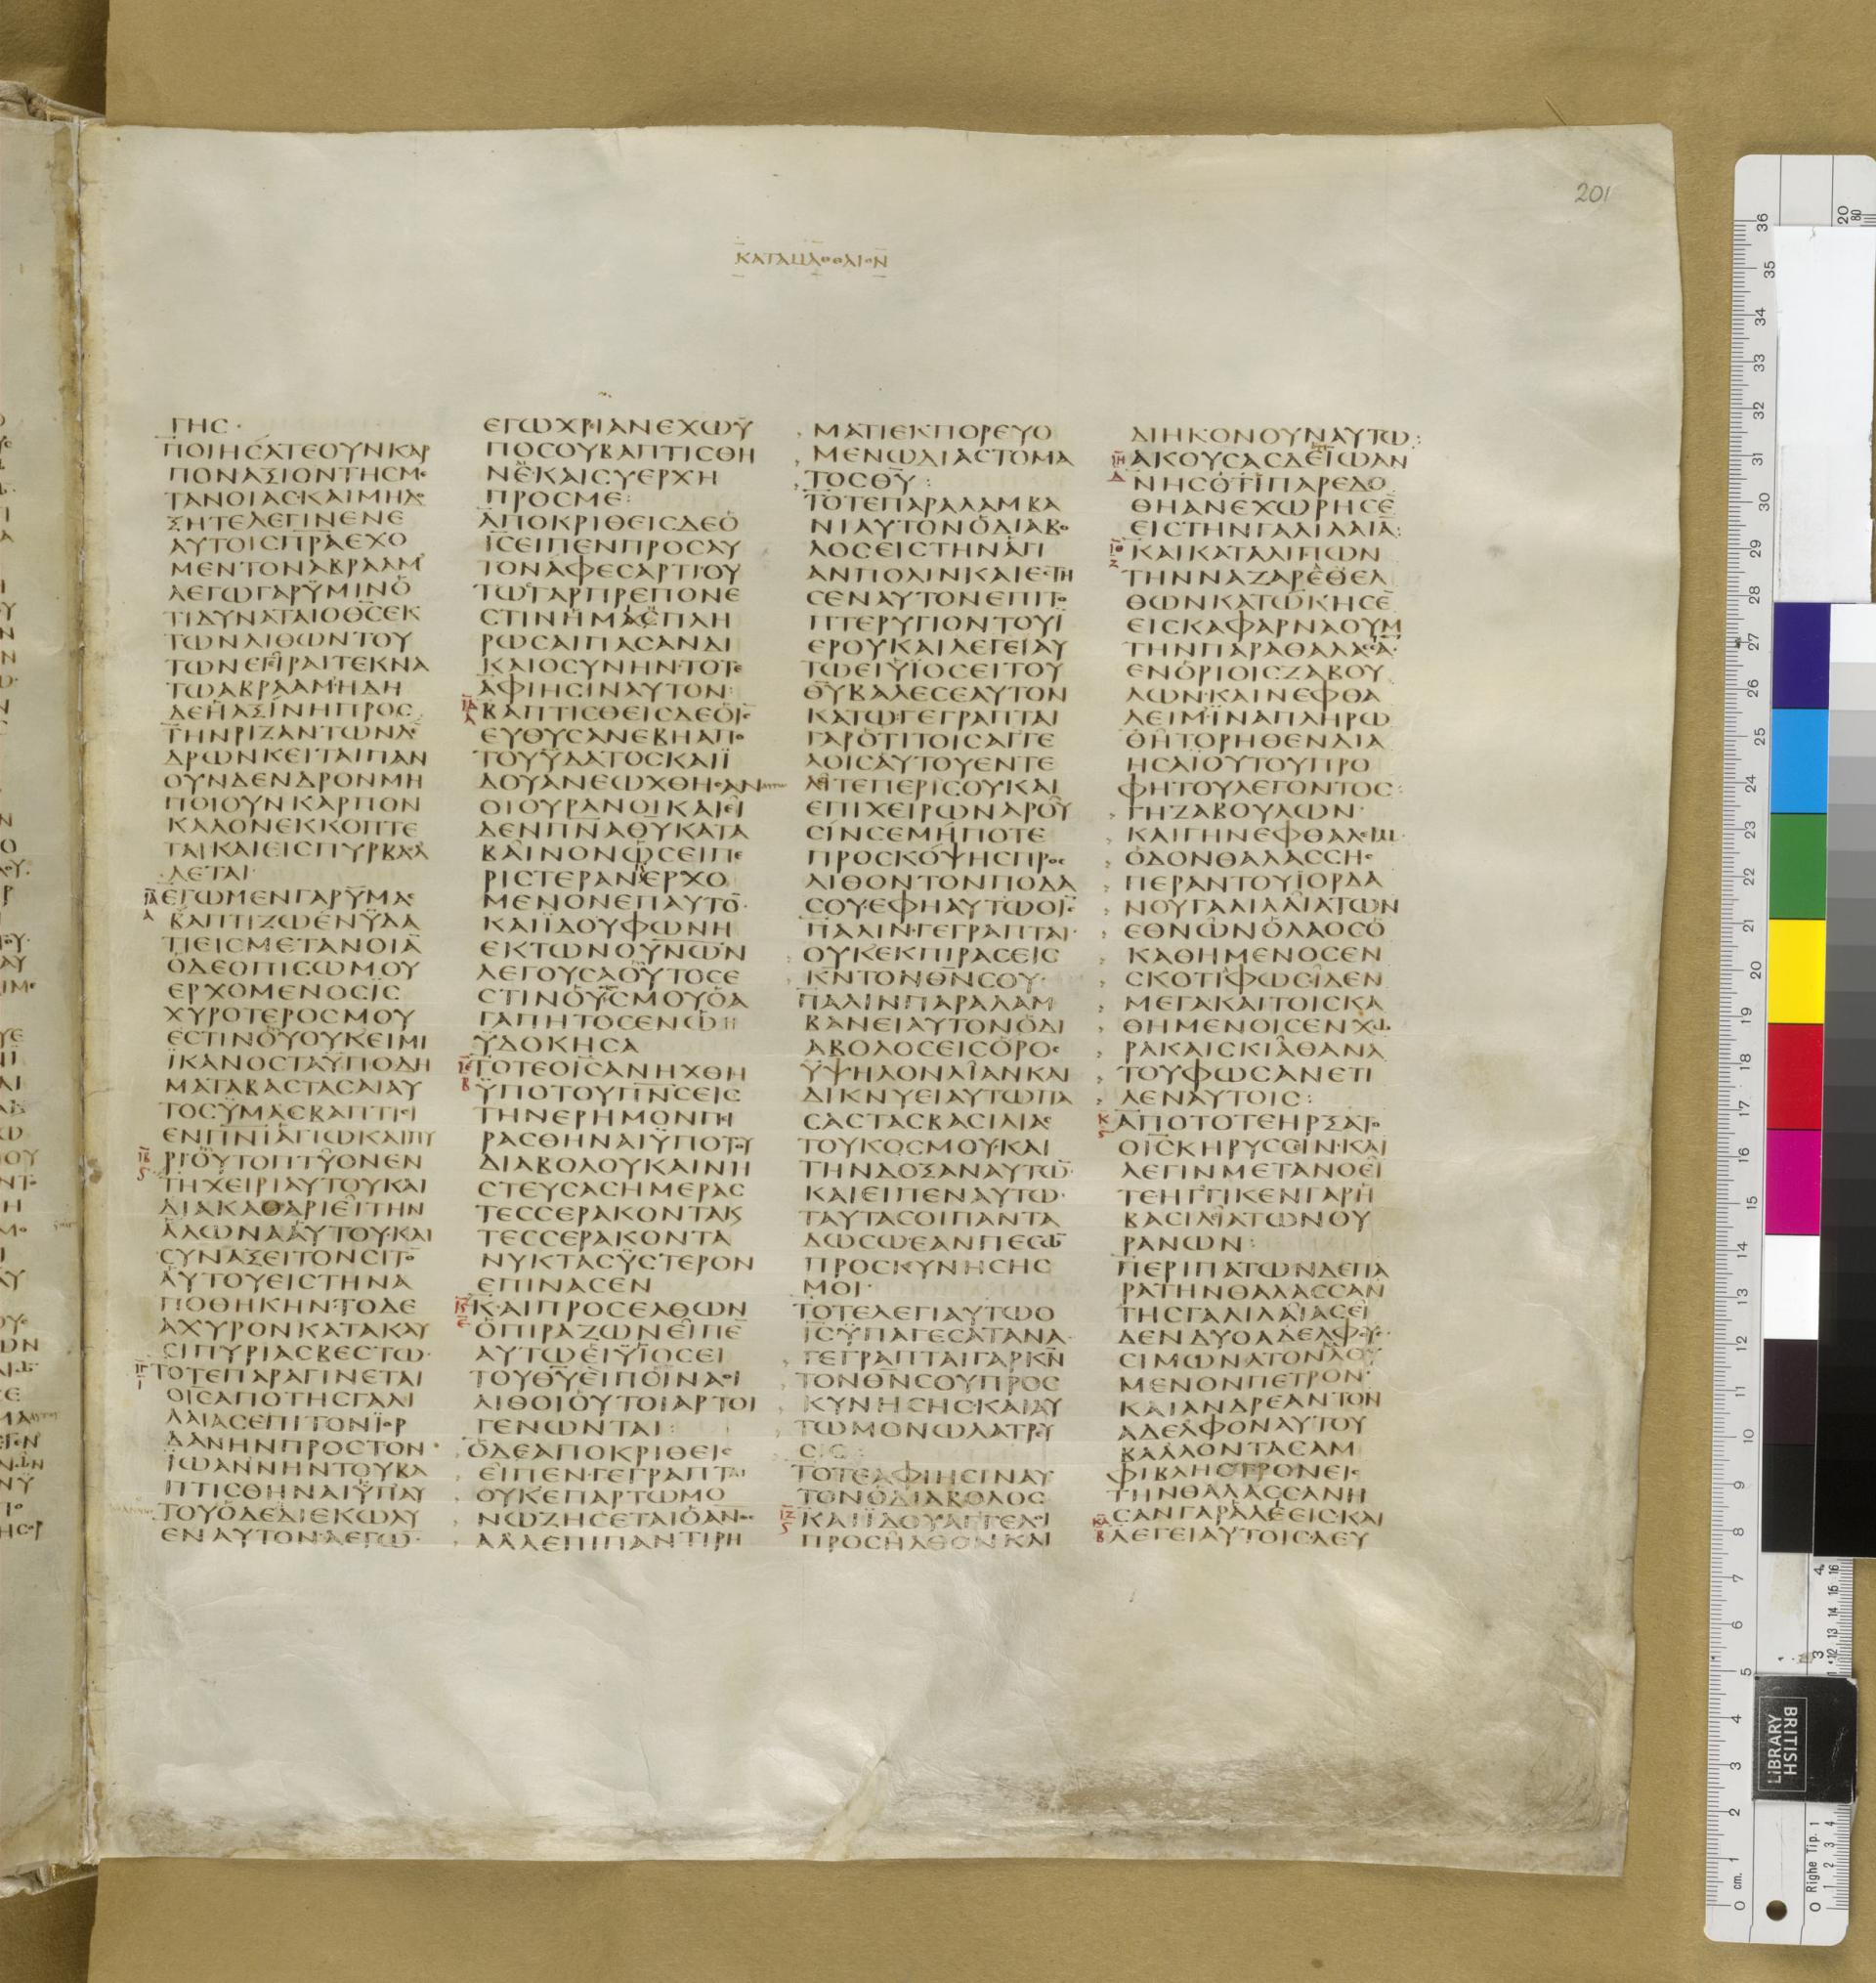 201
ΚΑΤΑ ΜΑΘΘΑΙΟΝ
ΓΗϹ·
ΠΟΙΗϹΑΤΕΟΥΝΚΑΡ
ΠΟΝΑΞΙΟΝΤΗϹΜΕ
ΤΑΝΟΙΑϹ·ΚΑΙΜΗΔΟ
ΞΗΤΕΛΕΓΙΝΕΝΕ
ΑΥΤΟΙϹΠΡΑΕΧΟ
ΜΕΝΤΟΝΑΒΡΑΑΜ
ΛΕΓΩΓΑΡΫΜΙΝΟ
ΤΙΔΥΝΑΤΑΙΟΘϹΕΚ
ΤΩΝΛΙΘΩΝΤΟΥ
ΤΩΝΕΓΙΡΑΙΤΕΚΝΑ
ΤΩΑΒΡΑΑΜ·ΗΔΗ
ΔΕΗΑΞΙΝΗΠΡΟϹ
ΤΗΝΡΙΖΑΝΤΩΝΔΕ
ΔΡΩΝΚΕΙΤΑΙΠΑΝ
ΟΥΝΔΕΝΔΡΟΝΜΗ
ΠΟΙΟΥΝΚΑΡΠΟΝ
ΚΑΛΟΝΕΚΚΟΠΤΕ
ΤΑΙΚΑΙΕΙϹΠΥΡΒΑΛ
ΛΕΤΑΙ·
ΙΑ ΕΓΩΜΕΝΓΑΡΫΜΑϹ
Α ΒΑΠΤΙΖΩΕΝΫΔΑ
ΤΙΕΙϹΜΕΤΑΝΟΙΑ̅
ΟΔΕΟΠΙϹΩΜΟΥ
ΕΡΧΟΜΕΝΟϹΙϹ
ΧΥΡΟΤΕΡΟϹΜΟΥ
ΕϹΤΙΝΟΥΟΥΚΕΙΜΙ
ΪΚΑΝΟϹΤΑΫΠΟΔΗ
ΜΑΤΑΒΑϹΤΑϹΑΙΑΥ
ΤΟϹΫΜΑϹΒΑΠΤΙϹΙ
ΕΝΠΝΙΑΓΙΩΚΑΙΠΥ
ΙΒ ΡΙ·ΟΥΤΟΠΤΥΟΝΕΝ
Ε ΤΗΧΕΙΡΙΑΥΤΟΥΚΑΙ
ΔΙΑΚΑΘΑΡΙΕΙΤΗΝ
ΑΛΩΝΑΑΥΤΟΥ·ΚΑΙ
ϹΥΝΑΞΕΙΤΟΝϹΙΤΟ̅
ΑΥΤΟΥΕΙϹΤΗΝΑ
ΠΟΘΗΚΗΝ·ΤΟΔΕ
ΑΧΥΡΟΝΚΑΤΑΚΑΥ
ϹΙΠΥΡΙΑϹΒΕϹΤΩ·
ΙΓ ΤΟΤΕΠΑΡΑΓΙΝΕΤΑΙ
Ι ΟΙϹΑΠΟΤΗϹΓΑΛΙ
ΛΑΙΑϹΕΠΙΤΟΝΪΟΡ
ΔΑΝΗΝΠΡΟϹΤΟΝ
ΪΩΑΝΝΗΝΤΟΥΒΑ
ΠΤΙϹΘΗΝΑΙΫΠΑΥ
ΤΟΥΟΔΕΔΙΕΚΩΛΥ
ΕΝΑΥΤΟΝ·ΛΕΓΩ·
ΕΓΩΧΡΙΑΝΕΧΩΫ
ΠΟϹΟΥΒΑΠΤΙϹΘΗ
ΝΕ·ΚΑΙϹΥΕΡΧΗ
ΠΡΟϹΜΕ:
ΑΠΟΚΡΙΘΕΙϹΔΕΟ
ΙϹΕΙΠΕΝΠΡΟϹΑΥ
ΤΟΝΑΦΕϹΑΡΤΙ·ΟΥ
ΤΩΓΑΡΠΡΕΠΟΝΕ
ϹΤΙΝΗΜΑϹΠΛΗ
ΡΩϹΑΙΠΑϹΑΝΔΙ
ΚΑΙΟϹΥΝΗΝ·ΤΟΤΕ
ΑΦΙΗϹΙΝΑΥΤΟΝ:
ΙΔ ΒΑΠΤΙϹΘΕΙϹΔΕΟΙϹ
Α ΕΥΘΥϹΑΝΕΒΗΑΠΟ
ΤΟΥΫΔΑΤΟϹΚΑΙΪ
ΔΟΥΑΝΕΩΧΘΗϹΑΝ
ΟΙΟΥΡΑΝΟΙΚΑΙΕΙ
ΔΕΝΠΝΑΘΥΚΑΤΑ
ΒΑΙΝΟΝΩϹΕΙΠΕ
ΡΙϹΤΕΡΑΝΕΡΧΟ
ΜΕΝΟΝΕΠΑΥΤΟ̅·
ΚΑΙΪΔΟΥΦΩΝΗ
ΕΚΤΩΝΟΥΝΩΝ
ΛΕΓΟΥϹΑΟΥΤΟϹΕ
ϹΤΙΝΟΥϹΜΟΥΟΑ
ΓΑΠΗΤΟϹΕΝΩΗ
ΫΔΟΚΗϹΑ
ΙΕ ΤΟΤΕΟΙϹΑΝΗΧΘΗ
Β ΫΠΟΤΟΥΠΝϹΕΙϹ
ΤΗΝΕΡΗΜΟΝΠΙ
ΡΑϹΘΗΝΑΙΫΠΟΤΟΥ
ΔΙΑΒΟΛΟΥΚΑΙΝΗ
ϹΤΕΥϹΑϹΗΜΕΡΑϹ
ΤΕϹϹΕΡΑΚΟΝΤΑΚϚ
ΤΕϹϹΕΡΑΚΟΝΤΑ
ΝΥΚΤΑϹΫϹΤΕΡΟΝ
ΕΠΙΝΑϹΕΝ
ΙϚ Κ·ΑΙΠΡΟϹΕΛΘΩΝ
Ε ΟΠΙΡΑΖΩΝΕΙΠΕ̅
ΑΥΤΩΕΙΫΙΟϹΕΙ
ΤΟΥΘΥΕΙΠΟΙΝΑΟΙ
ΛΙΘΟΙΟΥΤΟΙΑΡΤΟΙ
ΓΕΝΩΝΤΑΙ:
ΟΔΕΑΠΟΚΡΙΘΕΙϹ
ΕΙΠΕΝ·ΓΕΓΡΑΠΤΑΙ
ΟΥΚΕΠΑΡΤΩΜΟ
ΝΩΖΗϹΕΤΑΙΟΑΝΟϹ
ΑΛΛΕΠΙΠΑΝΤΙΡΗ
ΜΑΤΙΕΚΠΟΡΕΥΟ
ΜΕΝΩΔΙΑϹΤΟΜΑ
ΤΟϹΘΥ:
ΤΟΤΕΠΑΡΑΛΑΜΒΑ
ΝΙΑΥΤΟΝΟΔΙΑΒΟ
ΛΟϹΕΙϹΤΗΝΑΓΙ
ΑΝΠΟΛΙΝΚΑΙΕϹΤΗ
ϹΕΝΑΥΤΟΝΕΠΙΤΟ
ΠΤΕΡΥΓΙΟΝΤΟΥΪ
ΕΡΟΥΚΑΙΛΕΓΕΙΑΥ
ΤΩΕΙΫΙΟϹΕΙΤΟΥ
ΘΥΒΑΛΕϹΕΑΥΤΟΝ
ΚΑΤΩ·ΓΕΓΡΑΠΤΑΙ
ΓΑΡΟΤΙΤΟΙϹΑΓΓΕ
ΛΟΙϹΑΥΤΟΥΕΝΤΕ
ΛΙΤΕΠΕΡΙϹΟΥΚΑΙ
ΕΠΙΧΕΙΡΩΝΑΡΟΥ
ϹΙΝϹΕΜΗΠΟΤΕ
ΠΡΟϹΚΟΨΗϹΠΡΟϹ
ΛΙΘΟΝΤΟΝΠΟΔΑ
ϹΟΥ·ΕΦΗΑΥΤΩΟΙϹ
ΠΑΛΙΝ·ΓΕΓΡΑΠΤΑΙ·
ΟΥΚΕΚΠΙΡΑϹΕΙϹ
ΚΝΤΟΝΘΝϹΟΥ·
ΠΑΛΙΝΠΑΡΑΛΑΜ
ΒΑΝΕΙΑΥΤΟΝΟΔΙ
ΑΒΟΛΟϹΕΙϹΟΡΟϹ
ΫΨΗΛΟΝΛΙΑΝΚΑΙ
ΔΙΚΝΥΕΙΑΥΤΩΠΑ
ϹΑϹΤΑϹΒΑϹΙΛΙΑϹ
ΤΟΥΚΟϹΜΟΥ·ΚΑΙ
ΤΗΝΔΟΞΑΝΑΥΤΩ̅·
ΚΑΙΕΙΠΕΝΑΥΤΩ·
ΤΑΥΤΑϹΟΙΠΑΝΤΑ
ΔΩϹΩΕΑΝΠΕϹΩ̅
ΠΡΟϹΚΥΝΗϹΗϹ
ΜΟΙ·
ΤΟΤΕΛΕΓΙΑΥΤΩΟ
ΙϹΫΠΑΓΕϹΑΤΑΝΑ·
ΓΕΓΡΑΠΤΑΙΓΑΡΚΝ
ΤΟΝΘΝϹΟΥΠΡΟϹ
ΚΥΝΗϹΗϹ·ΚΑΙΑΥ
ΤΩΜΟΝΩΛΑΤΡΕΥ
ϹΙϹ:
ΤΟΤΕΑΦΙΗϹΙΝΑΥ
ΤΟΝΟΔΙΑΒΟΛΟϹ
ΙΖ ΚΑΙΪΔΟΥΑΓΓΕΛΟΙ
Ϛ ΠΡΟϹΗΛΘΟΝΚΑΙ
ΔΙΗΚΟΝΟΥΝΑΥΤΩ:
ΙΗ ΑΚΟΥϹΑϹΔΕΪΩΑΝ
Δ ΝΗϹΟΤΙΠΑΡΕΔΟ
ΘΗΑΝΕΧΩΡΗϹΕ̅
ΕΙϹΤΗΝΓΑΛΙΛΑΙΑ̅:
ΙΘ ΚΑΙΚΑΤΑΛΙΠΩΝ
Ζ ΤΗΝΝΑΖΑΡΕΘΕΛ
ΘΩΝΚΑΤΩΚΗϹΕ̅
ΕΙϹΚΑΦΑΡΝΑΟΥΜ
ΤΗΝΠΑΡΑΘΑΛΑϹϹΑ̅
ΕΝΟΡΙΟΙϹΖΑΒΟΥ
ΛΩΝ·ΚΑΙΝΕΦΘΑ
ΛΕΙΜ·ΪΝΑΠΛΗΡΩ
ΘΗΤΟΡΗΘΕΝΔΙΑ
ΗϹΑΙΟΥΤΟΥΠΡΟ
ΦΗΤΟΥΛΕΓΟΝΤΟϹ:
ΓΗΖΑΒΟΥΛΩΝ·
ΚΑΙΓΗΝΕΦΘΑΛΙΜ·
ΟΔΟΝΘΑΛΑϹϹΗϹ
ΠΕΡΑΝΤΟΥΪΟΡΔΑ
ΝΟΥΓΑΛΙΛΑΙΑΤΩΝ
ΕΘΝΩΝΟΛΑΟϹΟ
ΚΑΘΗΜΕΝΟϹΕΝ
ϹΚΟΤΙΦΩϹΕΙΔΕΝ
ΜΕΓΑΚΑΙΤΟΙϹΚΑ
ΘΗΜΕΝΟΙϹΕΝΧΩ
ΡΑΚΑΙϹΚΙΑΘΑΝΑ
ΤΟΥΦΩϹΑΝΕΤΙ
ΛΕΝΑΥΤΟΙϹ:
Κ ΑΠΟΤΟΤΕΗΡΞΑΤΟ
Ϛ ΟΙϹΚΗΡΥϹϹΙΝ·ΚΑΙ
ΛΕΓΙΝΜΕΤΑΝΟΕΙ
ΤΕΗΓΓΙΚΕΝΓΑΡΗ
ΒΑϹΙΛΙΑΤΩΝΟΥ
ΡΑΝΩΝ:
ΠΕΡΙΠΑΤΩΝΔΕΠΑ
ΡΑΤΗΝΘΑΛΑϹϹΑΝ
ΤΗϹΓΑΛΙΛΑΙΑϹΕΙ
ΔΕΝΔΥΟΑΔΕΛΦΟΥϹ
ϹΙΜΩΝΑΤΟΝΛΕΓΟΥ
ΜΕΝΟΝΠΕΤΡΟΝ·
ΚΑΙΑΝΔΡΕΑΝΤΟΝ
ΑΔΕΛΦΟΝΑΥΤΟΥ
ΒΑΛΛΟΝΤΑϹΑΜ
ΦΙΒΛΗϹΤΡΟΝΕΙϹ
ΤΗΝΘΑΛΑϹϹΑΝΗ
ΚΑ ϹΑΝΓΑΡΑΛΕΕΙϹΚΑΙ
Β ΛΕΓΕΙΑΥΤΟΙϹΔΕΥ